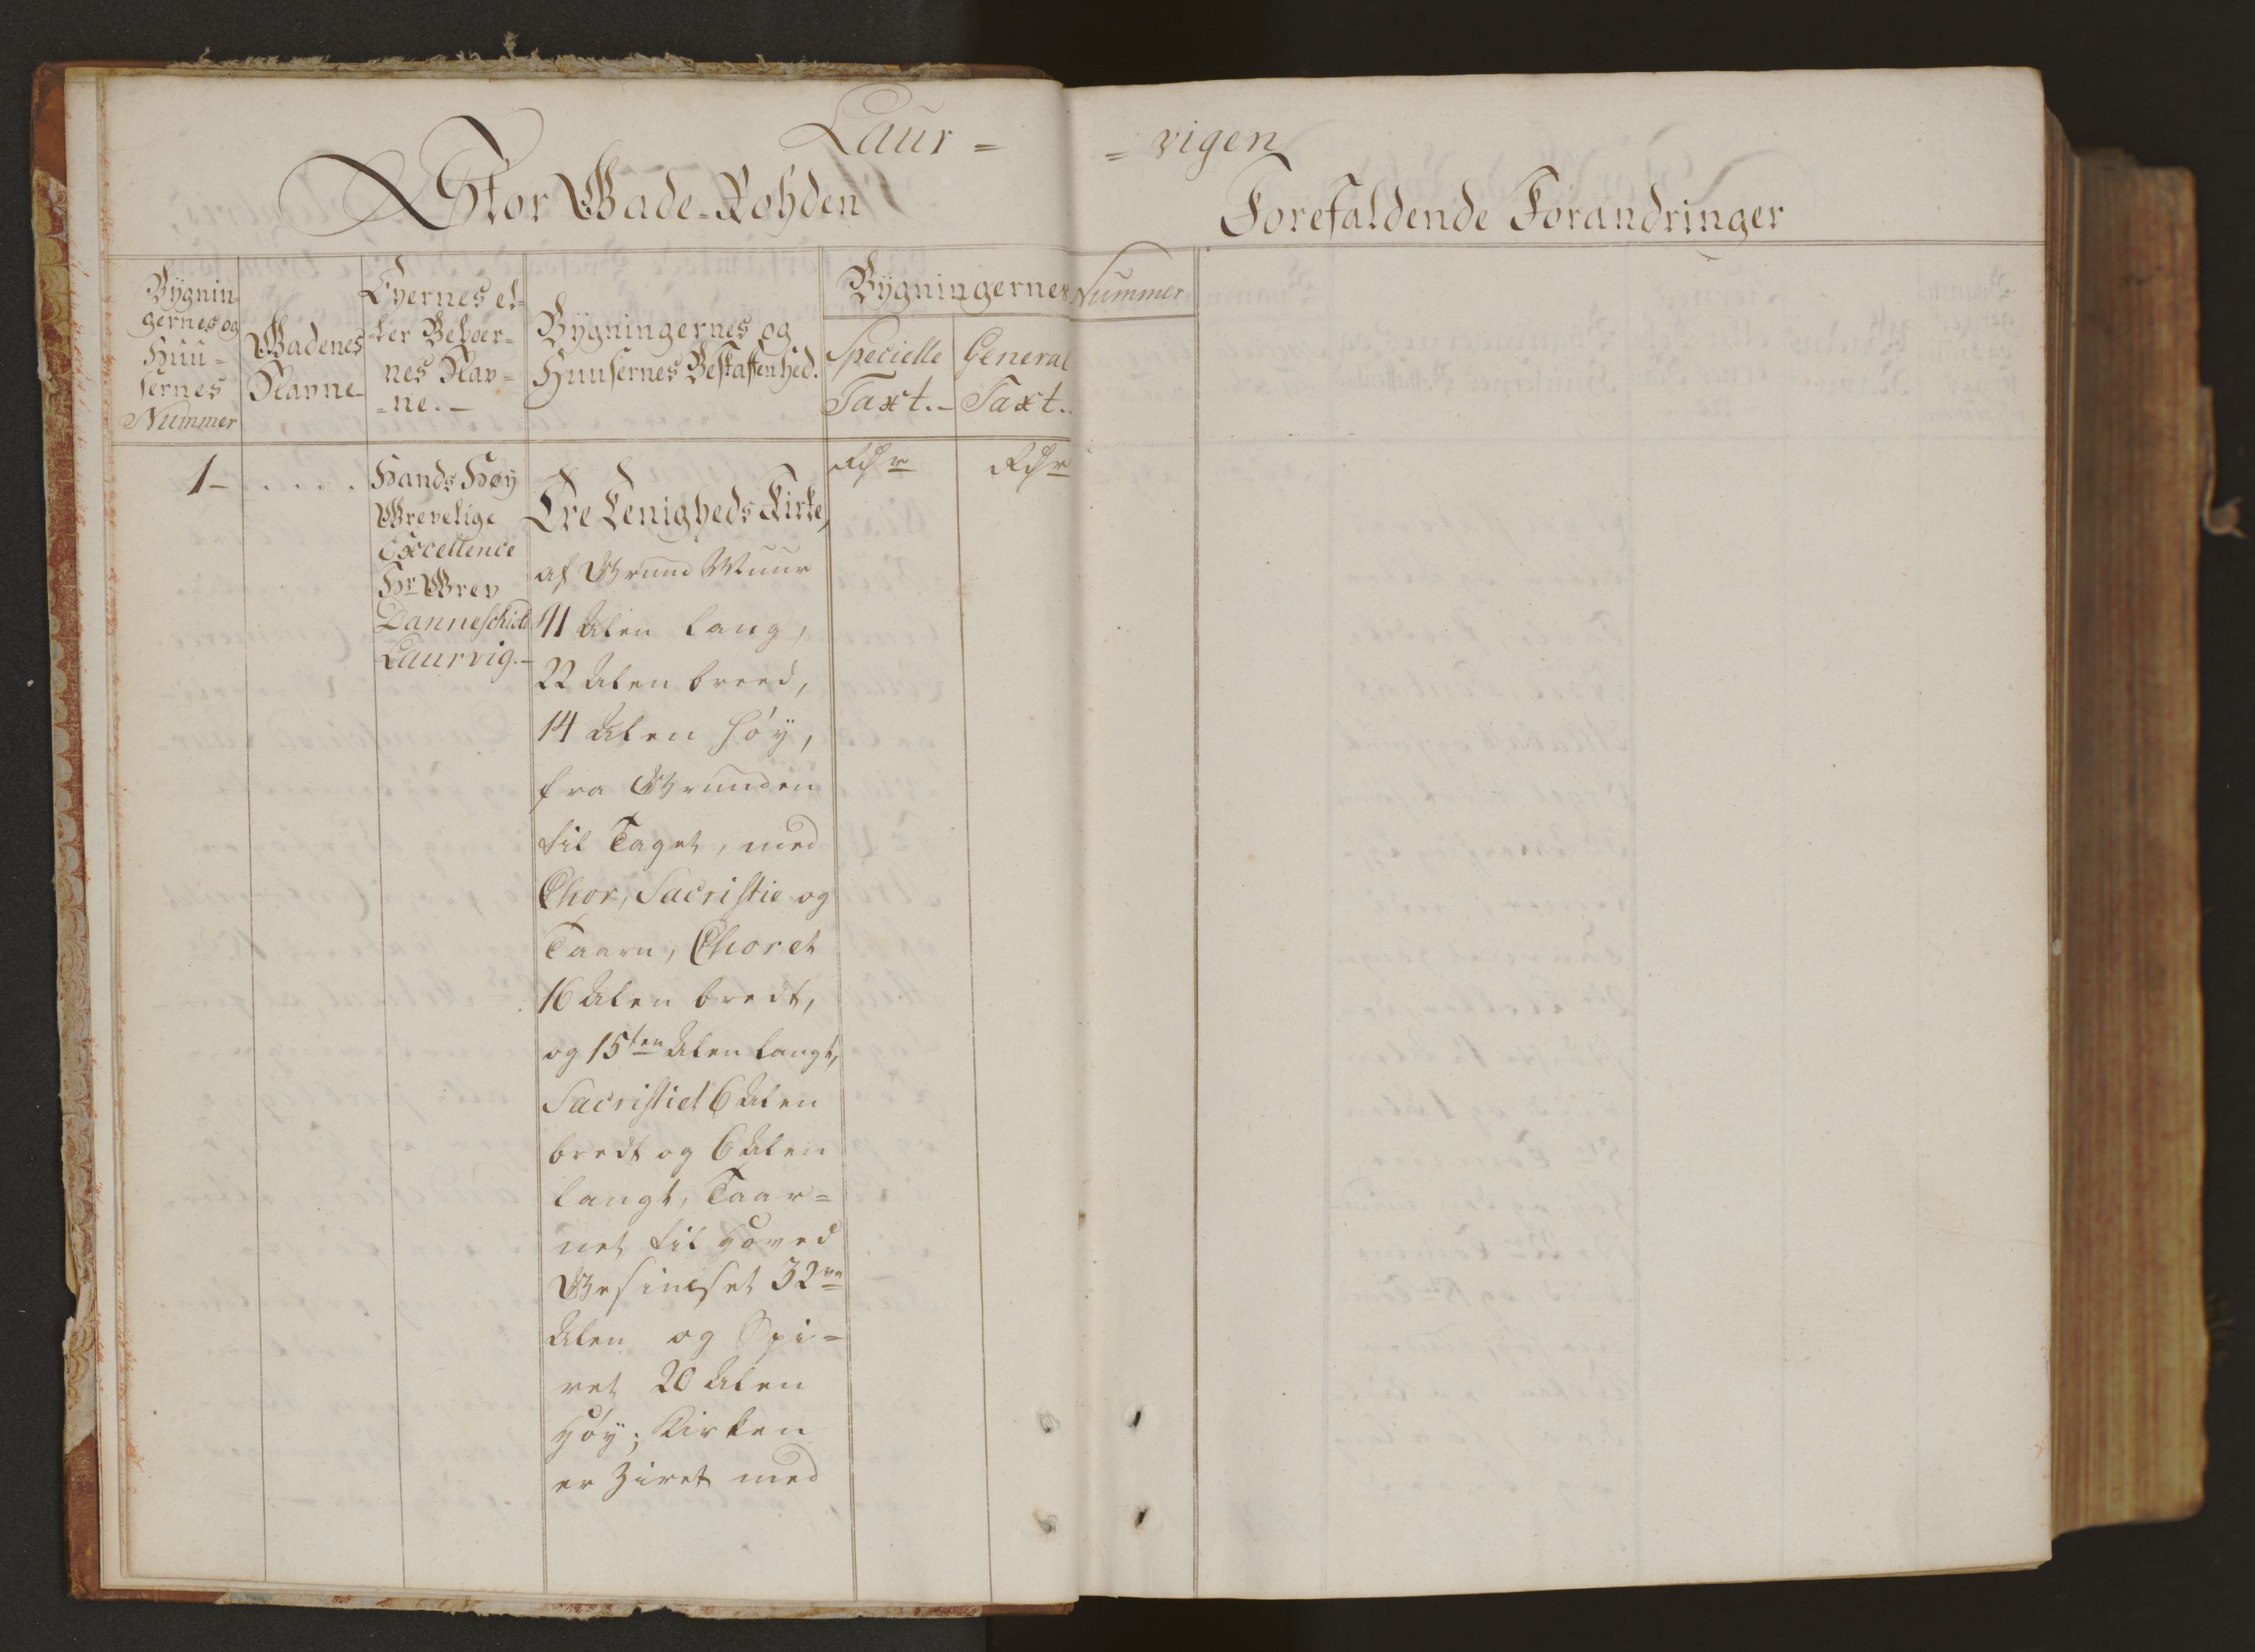 Laur = = vigen
Stor Gade-Rohden
Forefaldende Forandringer
Bÿgnin-
gernes og
Huu-
sernes
Nummer
Gadenes
Navne
Eyernes el-
ler Beboer=
nes Nav=
=ne.-
Bÿgningernes og
Huusernes Beskaffenhed.
Bÿgningernes Nummer
Specielle
Taxt.-
General
Taxt.
Rdr
Rdr
1- . . . .
Hands Høÿ
Grevelige
Excellence
Hr Grev
Danneschiold
Laurvig.-
Tre Eenigheds Kirke,
af Grund Muur
41 Alen lang,
22 Alen breed,
14 Alen høÿ,
fra Grunden
til Taget, med
Chor, Sacristie og
Taarn, Choret
16 Alen bredt,
og 15ten Alen langt,
Sacristiet 6 Alen
bredt og 6 Alen
langt, Taar=
net til Hoved
Gesimset 32ve
Alen og Spi=
ret 20 Alen
Høÿ; Kirken
er Ziret med